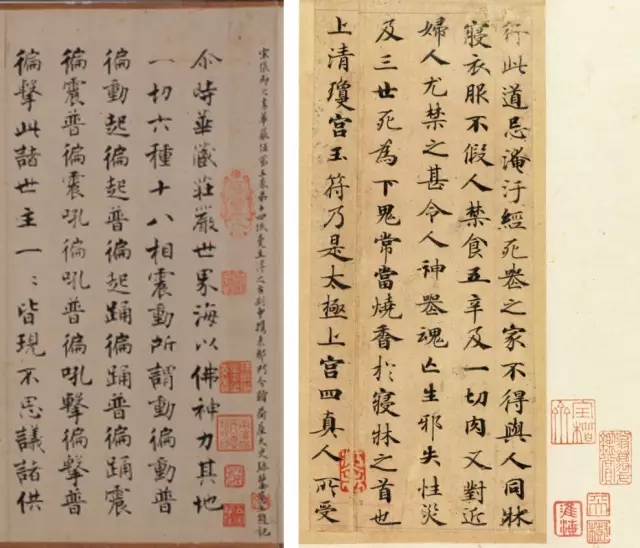 宋張即之書華嚴經第五卷
尒時華藏莊嚴世界海以佛神力其地
一切六種十八相震動所謂動徧動普
徧動起徧起普徧起踊徧踊普徧踊震
徧震普徧震吼徧吼普徧吼擊徧擊普
徧擊此諸世主一〻皆現不思議諸供
行此道忌淹汙經死喪之家不得與人同牀
寢衣服不假人禁食五辛及一切肉又對近
婦人尤禁之甚令人神喪魂亡生邪失性災
及三世死為下鬼常當燒香於寢牀之首也
上清瓊宮玉符乃是太極上宮四真人所受